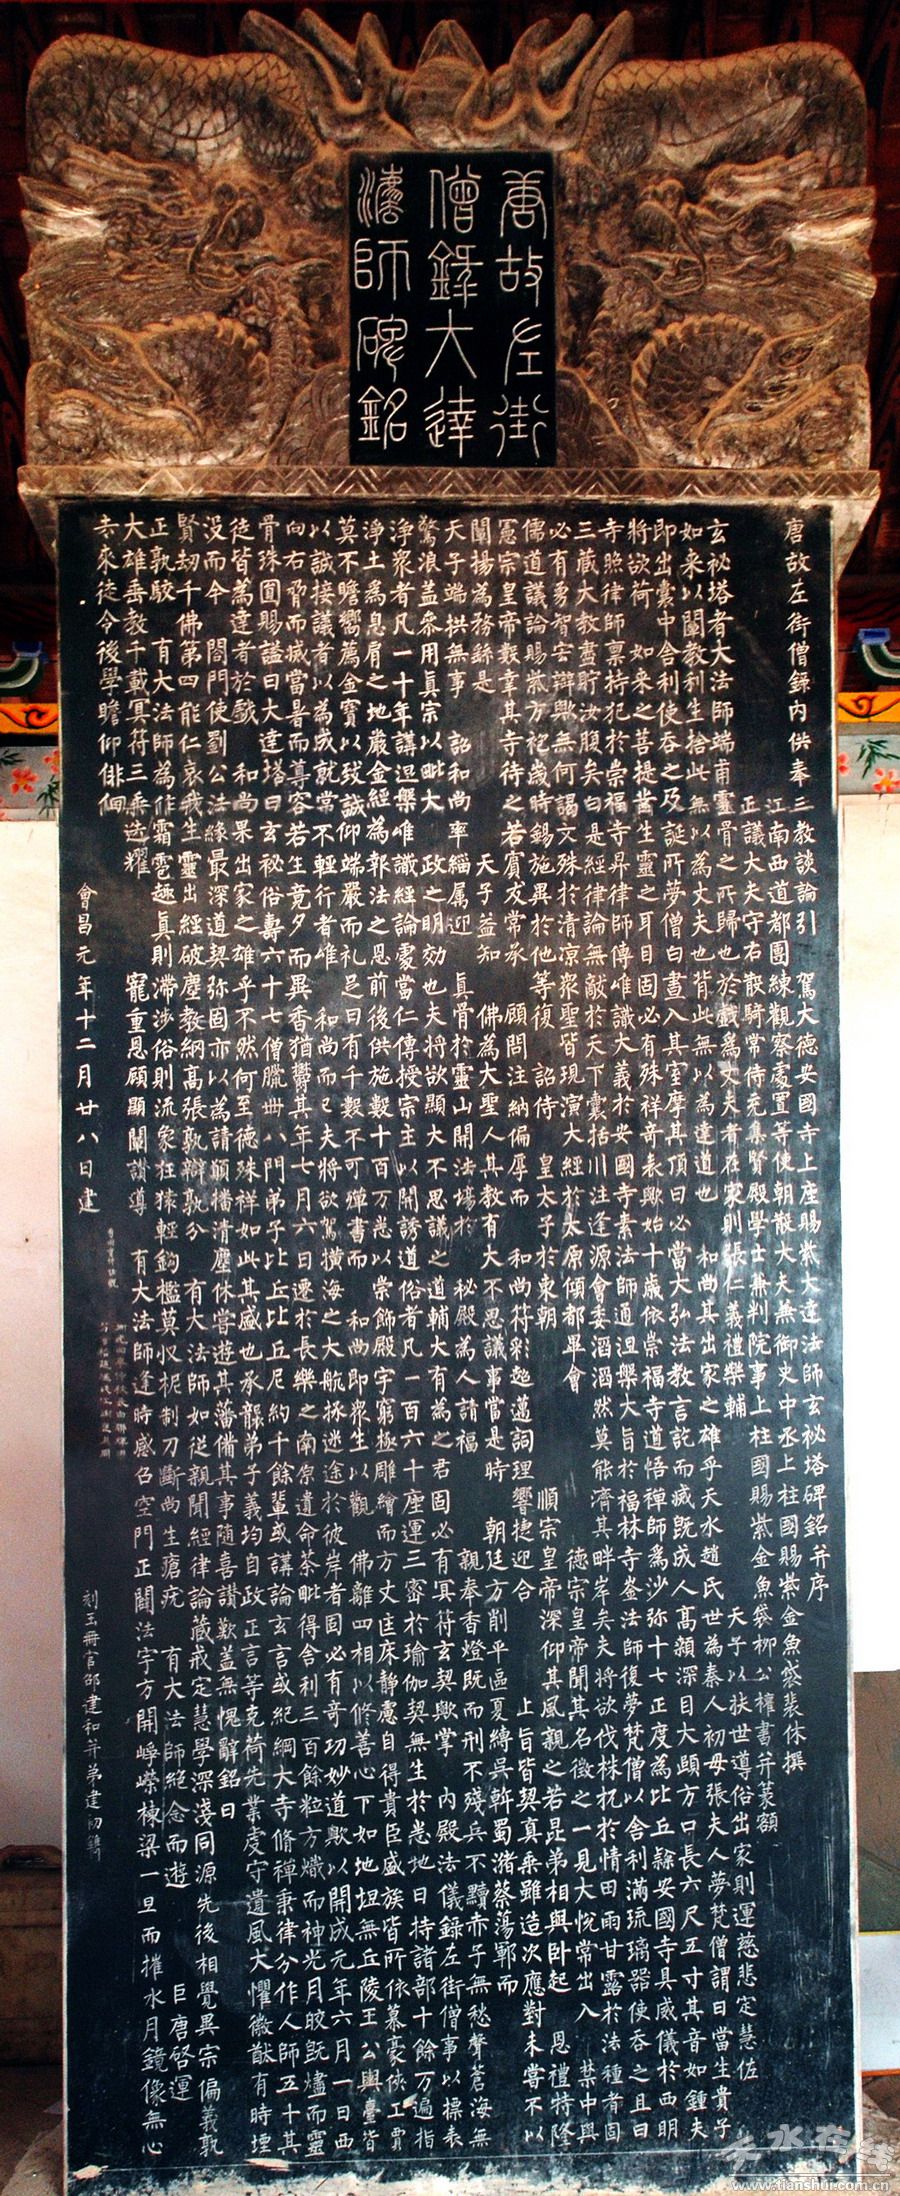 唐故左街
僧錄大達
法師碑銘
唐故左街僧錄內供奉三教談論引駕大德安國寺上座賜紫大達法師玄秘塔碑銘并序
江南西道都團練觀察處置等使朝散大夫兼御史中丞上柱國賜紫金魚袋裴休撰
正議大夫守右散騎常侍充集賢殿學士兼判院事上柱國賜紫金魚袋柳公權書并篆額
玄秘塔者大法師端甫靈骨之所歸也於戲為丈夫者在家則張仁義禮樂輔天子以扶世導俗出家則運慈悲定慧佐
如来以闡教利生捨此無以為丈夫也背此無以為達道也和尚其出家之雄乎天水趙氏世為秦人初母張夫人夢梵僧謂曰當生貴子
即出囊中舍利使吞之及誕所夢僧白晝入其室摩其頂曰必當大弘法教言訖而滅既成人高顙深目大頤方口長六尺五寸其音如鍾夫
將欲荷如来之菩提鑿生靈之耳目固必有殊祥奇表歟始十歲依崇福寺道悟禪師為沙弥十七正度為比丘隸安國寺具威儀於西明
寺照律師稟持犯於崇福寺昇律師傳唯識大義於安國寺素法師通涅槃大旨於福林寺崟法師復夢梵僧以舍利滿琉璃器使吞之且曰
三藏大教盡貯汝腹矣自是經律論無敵於天下囊括川注逢源會委滔滔然莫能濟其畔岸矣夫將欲伐株杌於情田雨甘露於法種者固
必有勇智宏辯歟無何謁文殊於清涼衆聖皆現演大經於太原傾都畢會德宗皇帝聞其名徵之一見大悅常出入禁中與
儒道議論賜紫方袍歲時錫施異於他等復詔侍皇太子於東朝順宗皇帝深仰其風親之若昆弟相與卧起恩禮特隆
憲宗皇帝數幸其寺待之若賓友常承顧問注納偏厚而和尚符彩超邁詞理響捷迎合上旨皆契真乘雖造次應對未嘗不以
闡揚為務繇是天子益知佛為大聖人其教有大不思議事當是時朝廷方削平區夏縛吳斡蜀瀦蔡蕩鄆而
天子端拱無事詔和尚率緇屬迎真骨於靈山開法場於秘殿為人請福親奉香燈既而刑不殘兵不黷赤子無愁聲蒼海無
驚浪蓋參用真宗以毗大政之明効也夫將欲顯大不思議之道輔大有為之君固必有冥符玄契歟掌內殿法儀錄左街僧事以標表
淨衆者凡一十年講涅槃唯識經論處當仁傳授宗主以開誘道俗者凡一百六十座運三密於瑜伽契無生於悉地日持諸部十餘万遍指
淨土為息肩之地嚴金經為報法之恩前後供施數十百万悉以崇飾殿宇窮極雕繪而方丈匡床靜慮自得貴臣盛族皆所依慕豪俠工賈
莫不瞻嚮薦金寶以致誠仰端嚴而礼足日有千數不可殫書而和尚即衆生以觀佛離四相以修善心下如地坦無丘陵王公輿臺皆
以誠接議者以為成就常不輕行者唯和尚而已夫將欲駕橫海之大航拯迷途於彼岸者固必有奇功妙道歟以開成元年六月一日西
向右脅而滅當暑而尊容若生竟夕而異香猶鬱其年七月六日遷於長樂之南原遺命荼毗得舍利三百餘粒方熾而神光月皎既燼而靈
骨珠圓賜謚曰大達塔曰玄秘俗壽六十七僧臘卌八門弟子比丘比丘尼約千餘輩或講論玄言或紀綱大寺脩禪秉律分作人師五十其
徒皆為達者於戲和尚果出家之雄乎不然何至德殊祥如此其盛也承襲弟子義均自政正言等克荷先業虔守遺風大懼徽猷有時堙
沒而今閤門使劉公法緣最深道契弥固亦以為請願播清塵休嘗遊其藩備其事隨喜讚歎蓋無愧辭銘曰
賢劫千佛第四能仁哀我生靈出經破塵教網高張孰辯孰分有大法師如從親聞經律論藏戒定慧學深淺同源先後相覺異宗偏義孰
正孰駮有大法師為作霜雹趣真則滯涉俗則流象狂猿輕鈎檻莫收柅制刀斷尚生瘡疣有大法師絕念而遊巨唐啓運
大雄垂教千載冥符三乘迭耀寵重恩顧顯闡讚導有大法師逢時感召空門正闢法宇方開崢嶸棟梁一旦而摧水月鏡像無心
去來徒令後學瞻仰俳佪
會昌元年十二月廿八日建
刻玉冊官邵建和并弟建初鐫
天水在线
www.tianshui.com.cn